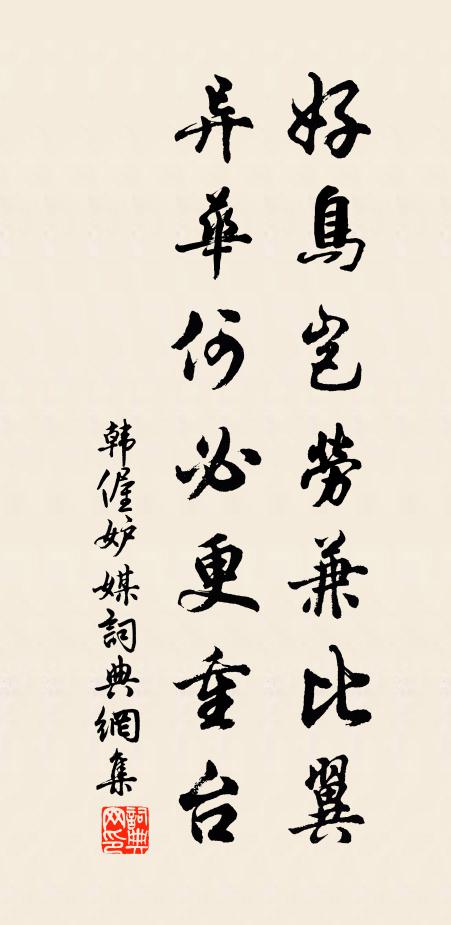 好鳥豈勞兼比翼
异華何必更重台
韩偓妒媒詞典網集
詞典网印